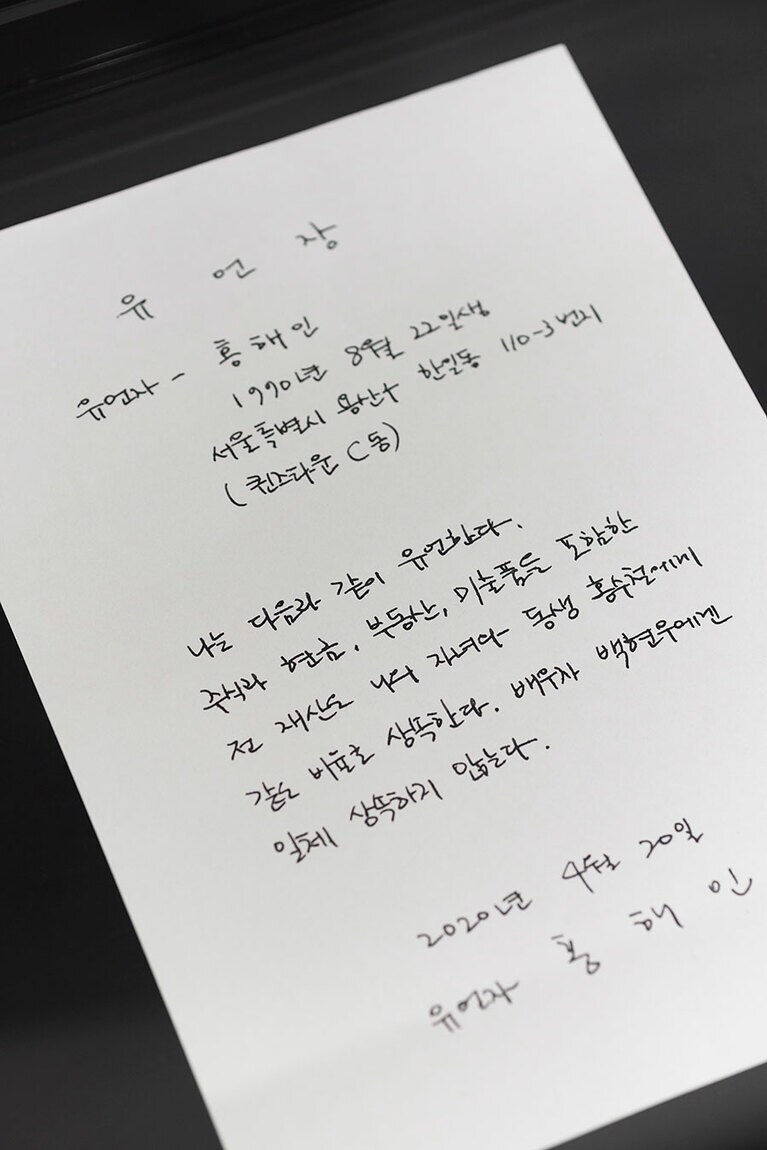 유 언 장
유언자 - 홍해인
1990년 8월 22일생
서울특별시 용산구 한일동 110-3번지
(퀸즈타운 C동)
나는 다음과 같이 유언한다.
주식과 현금, 부동산, 미술품을 포함한
전 재산을 나의 자녀와 동생 홍수철에게
같은 비율로 상속한다. 배우자 백현우에겐
일체 상속하지 않는다.
2020년 4월 20일
유언자 홍 해 인